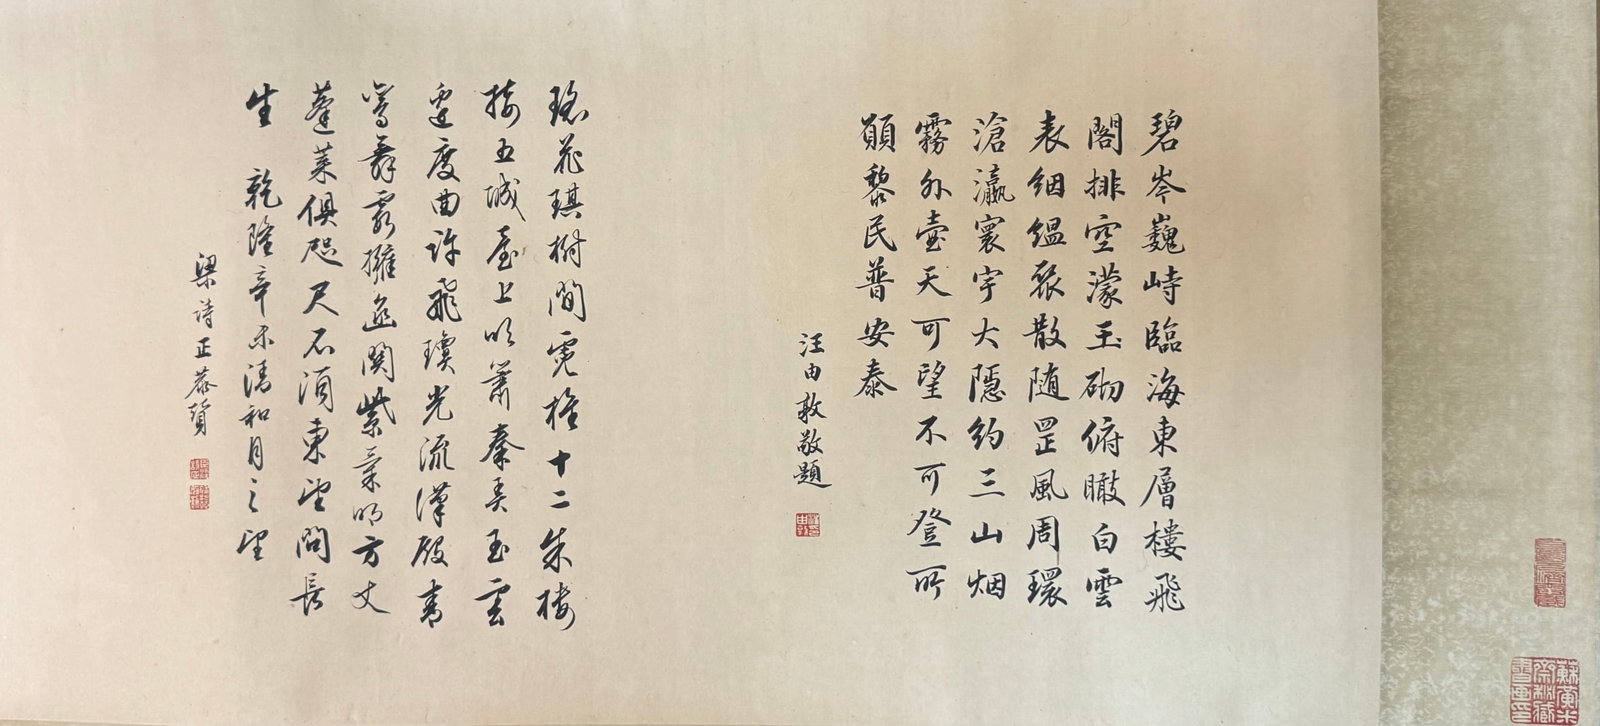 碧岑巍峙臨海東層樓飛
閣排空濛玉砌俯瞰白雲
表絪緼聚散随罡風周環
滄瀛寰宇大隱約三山烟
霧外壺天可望不可登所
願黎民普安泰
汪由敦敬題
瑤花琪樹間雲橦十二朱樓
接五城臺上吹簫秦弄玉雲
邊度曲許飛瓊光流漢殿青
鸞舞露擁函關紫氣明方丈
蓬萊俱咫尺不須東望問長
生 乾隆辛未清和月之望
梁詩正恭贊